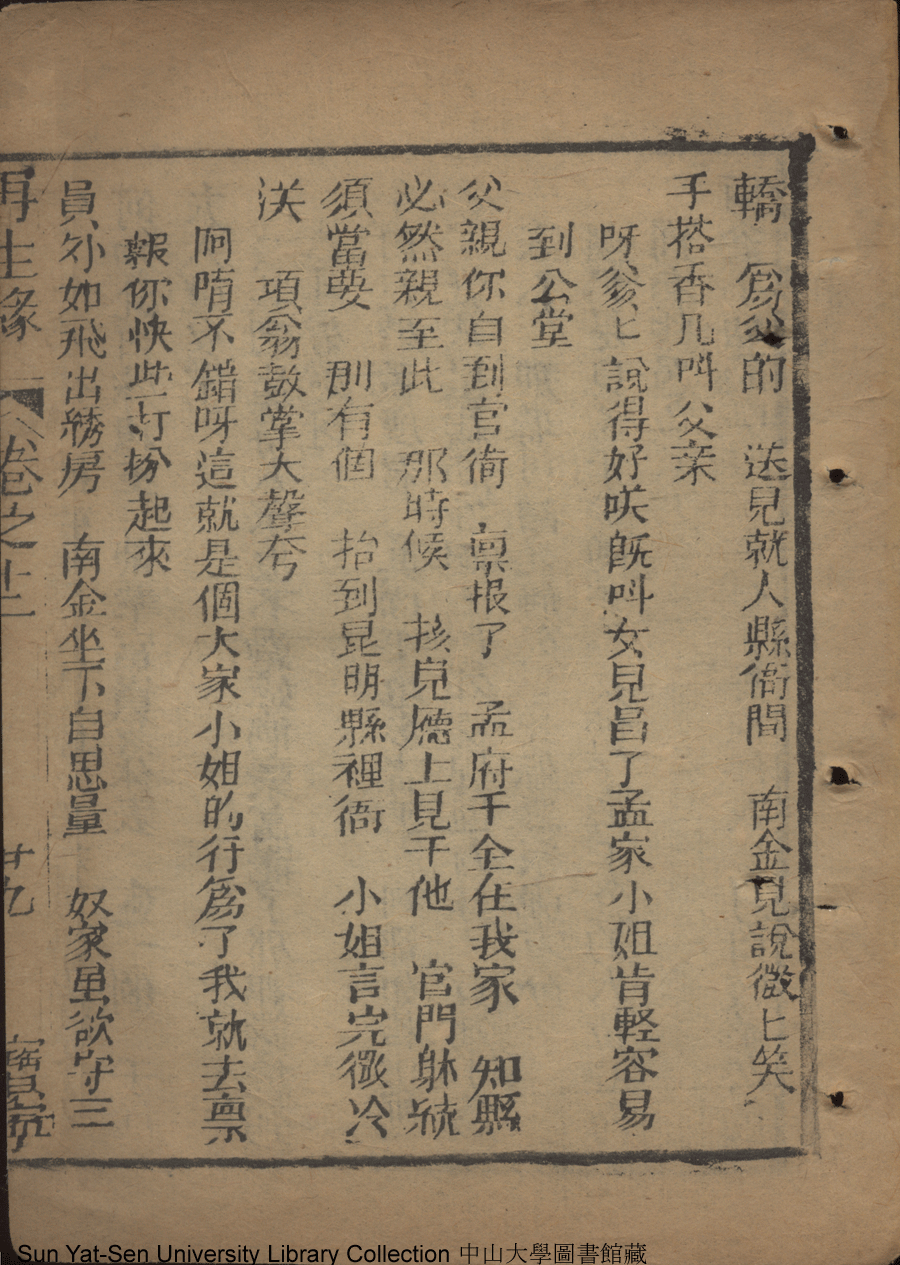 轎 爲父的 送見就人縣衙間 南金見說微〻笑
手搭香几叫父亲
呀爹〻說得好咲既叫女見昌了孟家小姐肯輕容易
到公堂
父親你自到官衙 禀报了 孟府千全在我家 知縣
必然親至此 那時候 孩皃廳上見于他 官門躰統
須當要 那有個 抬到昆明縣裡衙 小姐言完微冷
送 項翁鼓掌大聲兮
阿唷不錯呀這就是個大家小姐的行爲了我就去禀
報你快些打扮起來
員外如飛出綉房 南金坐下自思量 奴家虽欲守三
再生緣 卷之十二 廿九
Sun Yat-Sen University Library Collection 中山大學圖書館藏